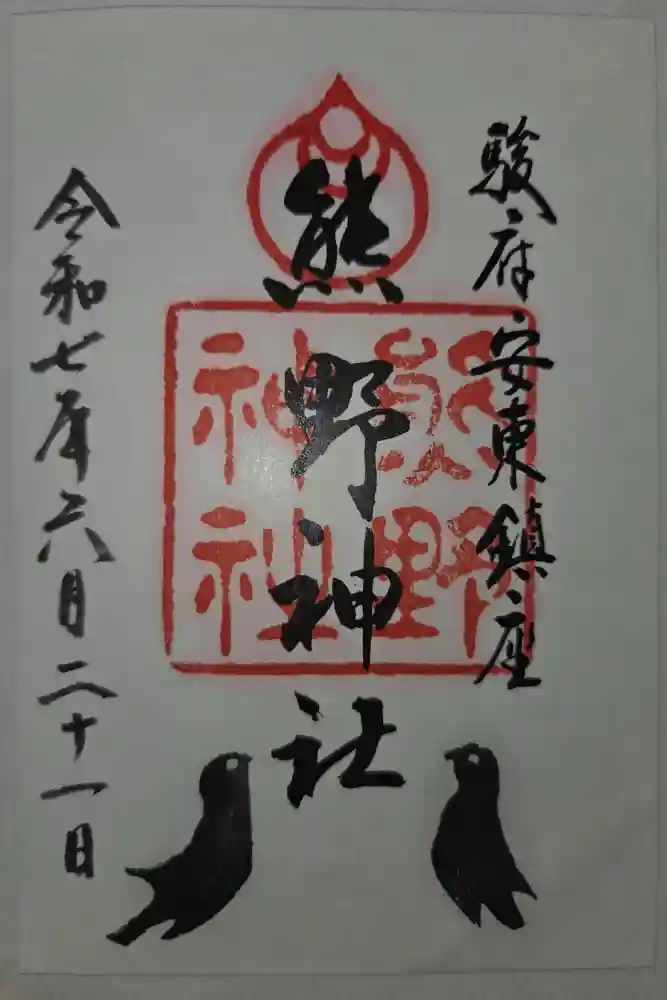 駿府安東鎮座
熊野神社
熊野神社
令和七年六月二十一日